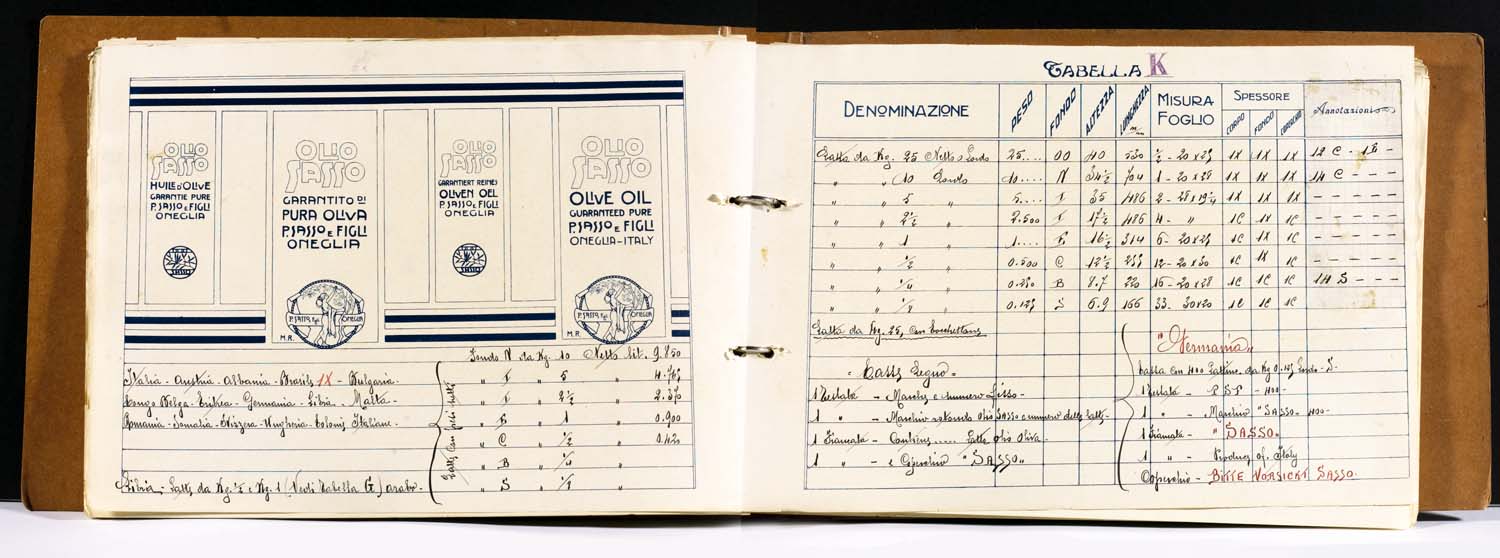 OLIO
SASSO
HUILE D'OLIVE
GARANTIE PURE
P. SASSO E FIGLI
ONEGLIA
SASSO
OLIO
SASSO
GARANTITO DI
PURA OLIVA
P. SASSO E FIGLI
ONEGLIA
P. SASSO e Figli ONEGLIA
M.R.
OLIO
SASSO
GARANTIERT REINES
OLIVEN OEL
P. SASSO E FIGLI
ONEGLIA
SASSO
OLIO
SASSO
OLIVE OIL
GUARANTEED PURE
P. SASSO E FIGLI
ONEGLIA-ITALY
P. SASSO e Figli ONEGLIA
M.R.
Fondo N da Kg. 10 Netto Lit. 9.850
Italia - Austria - Albania - Brasile IX - Bulgaria.
" " 5 "
Congo Belga - Eritrea - Germania - Libia - Malta -
" " 2½ " 2.370
Romania - Somalia - Svizzera - Ungheria - Colonie Italiane.
" E " 1 " 0.900
" C " ½ " 0.420
" B " ¼ "
Libia - Latte da Kg. ½ e Kg. 1 (Vedi Tabella G) arabo.
" S " "
TABELLA K
DENOMINAZIONE PESO FONDO ALTEZZA LUNGHEZZA m/m MISURA FOGLIO SPESSORE CORPO FONDO COPERCHIO Annotazioni
Latta da Kg. 25 Netto o Lordo 25.... 00 40 530 ½ - 20x27 1X 1X 1X 12 C - 1B -
" " 10 Lordo 10.... N 34½ 704 1 - 20x28 1X 1X 1X 14 C - - -
" " 5 " 5.... 35 486 2 - 28x19¼ 1X 1X 1X - - - - -
" " 2½ " 2.500 17½ 486 4 - " 1C 1X 1C - - - - -
" " 1 " 1.... E 16½ 314 6 - 20x27 1C 1X 1C - - - - -
" " ½ " 0.500 C 12½ 237 12 - 20x30 1C 1X 1C - - - - -
" " ¼ " 0.250 B 8.7 220 16 - 20x28 1C 1C 1C 14 S - - -
" " " 0.125 S 6.9 166 33. 30x20 1C 1C 1C - - - - -
Latta da Kg. 25, con bocchettone
" Casse Legno "
1 Testata - Marche e numero Lotto -
1 " - Marchio rotondo Olio SASSO e numero delle Latte -
1 Fiancata - Contiene ..... Latte Olio Oliva -
1 " - e Coperchio " SASSO "
" Germania "
Cassa con 400 Lattine da Kg 0.125 Lordo - S.
1 Testata - P S F - 400 -
1 " - Marchio " SASSO - 400 -
1 Fiancata - " SASSO "
1 " - Produce of Italy
Coperchio - BITTE VORSICHT SASSO.